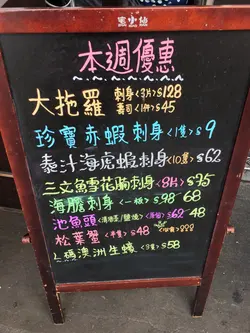 本週優惠
大拖羅 刺身(3片)$128
壽司(1件)$45
珍寶赤蝦刺身(1隻)$9
泰汁海虎蝦刺身(10隻)$62
三文魚雪花腩刺身(8片)$95
海膽刺身(一板)$98-68
池魚頭 $62 48
松葉蟹(半隻)$48
澳洲生蠔 $58